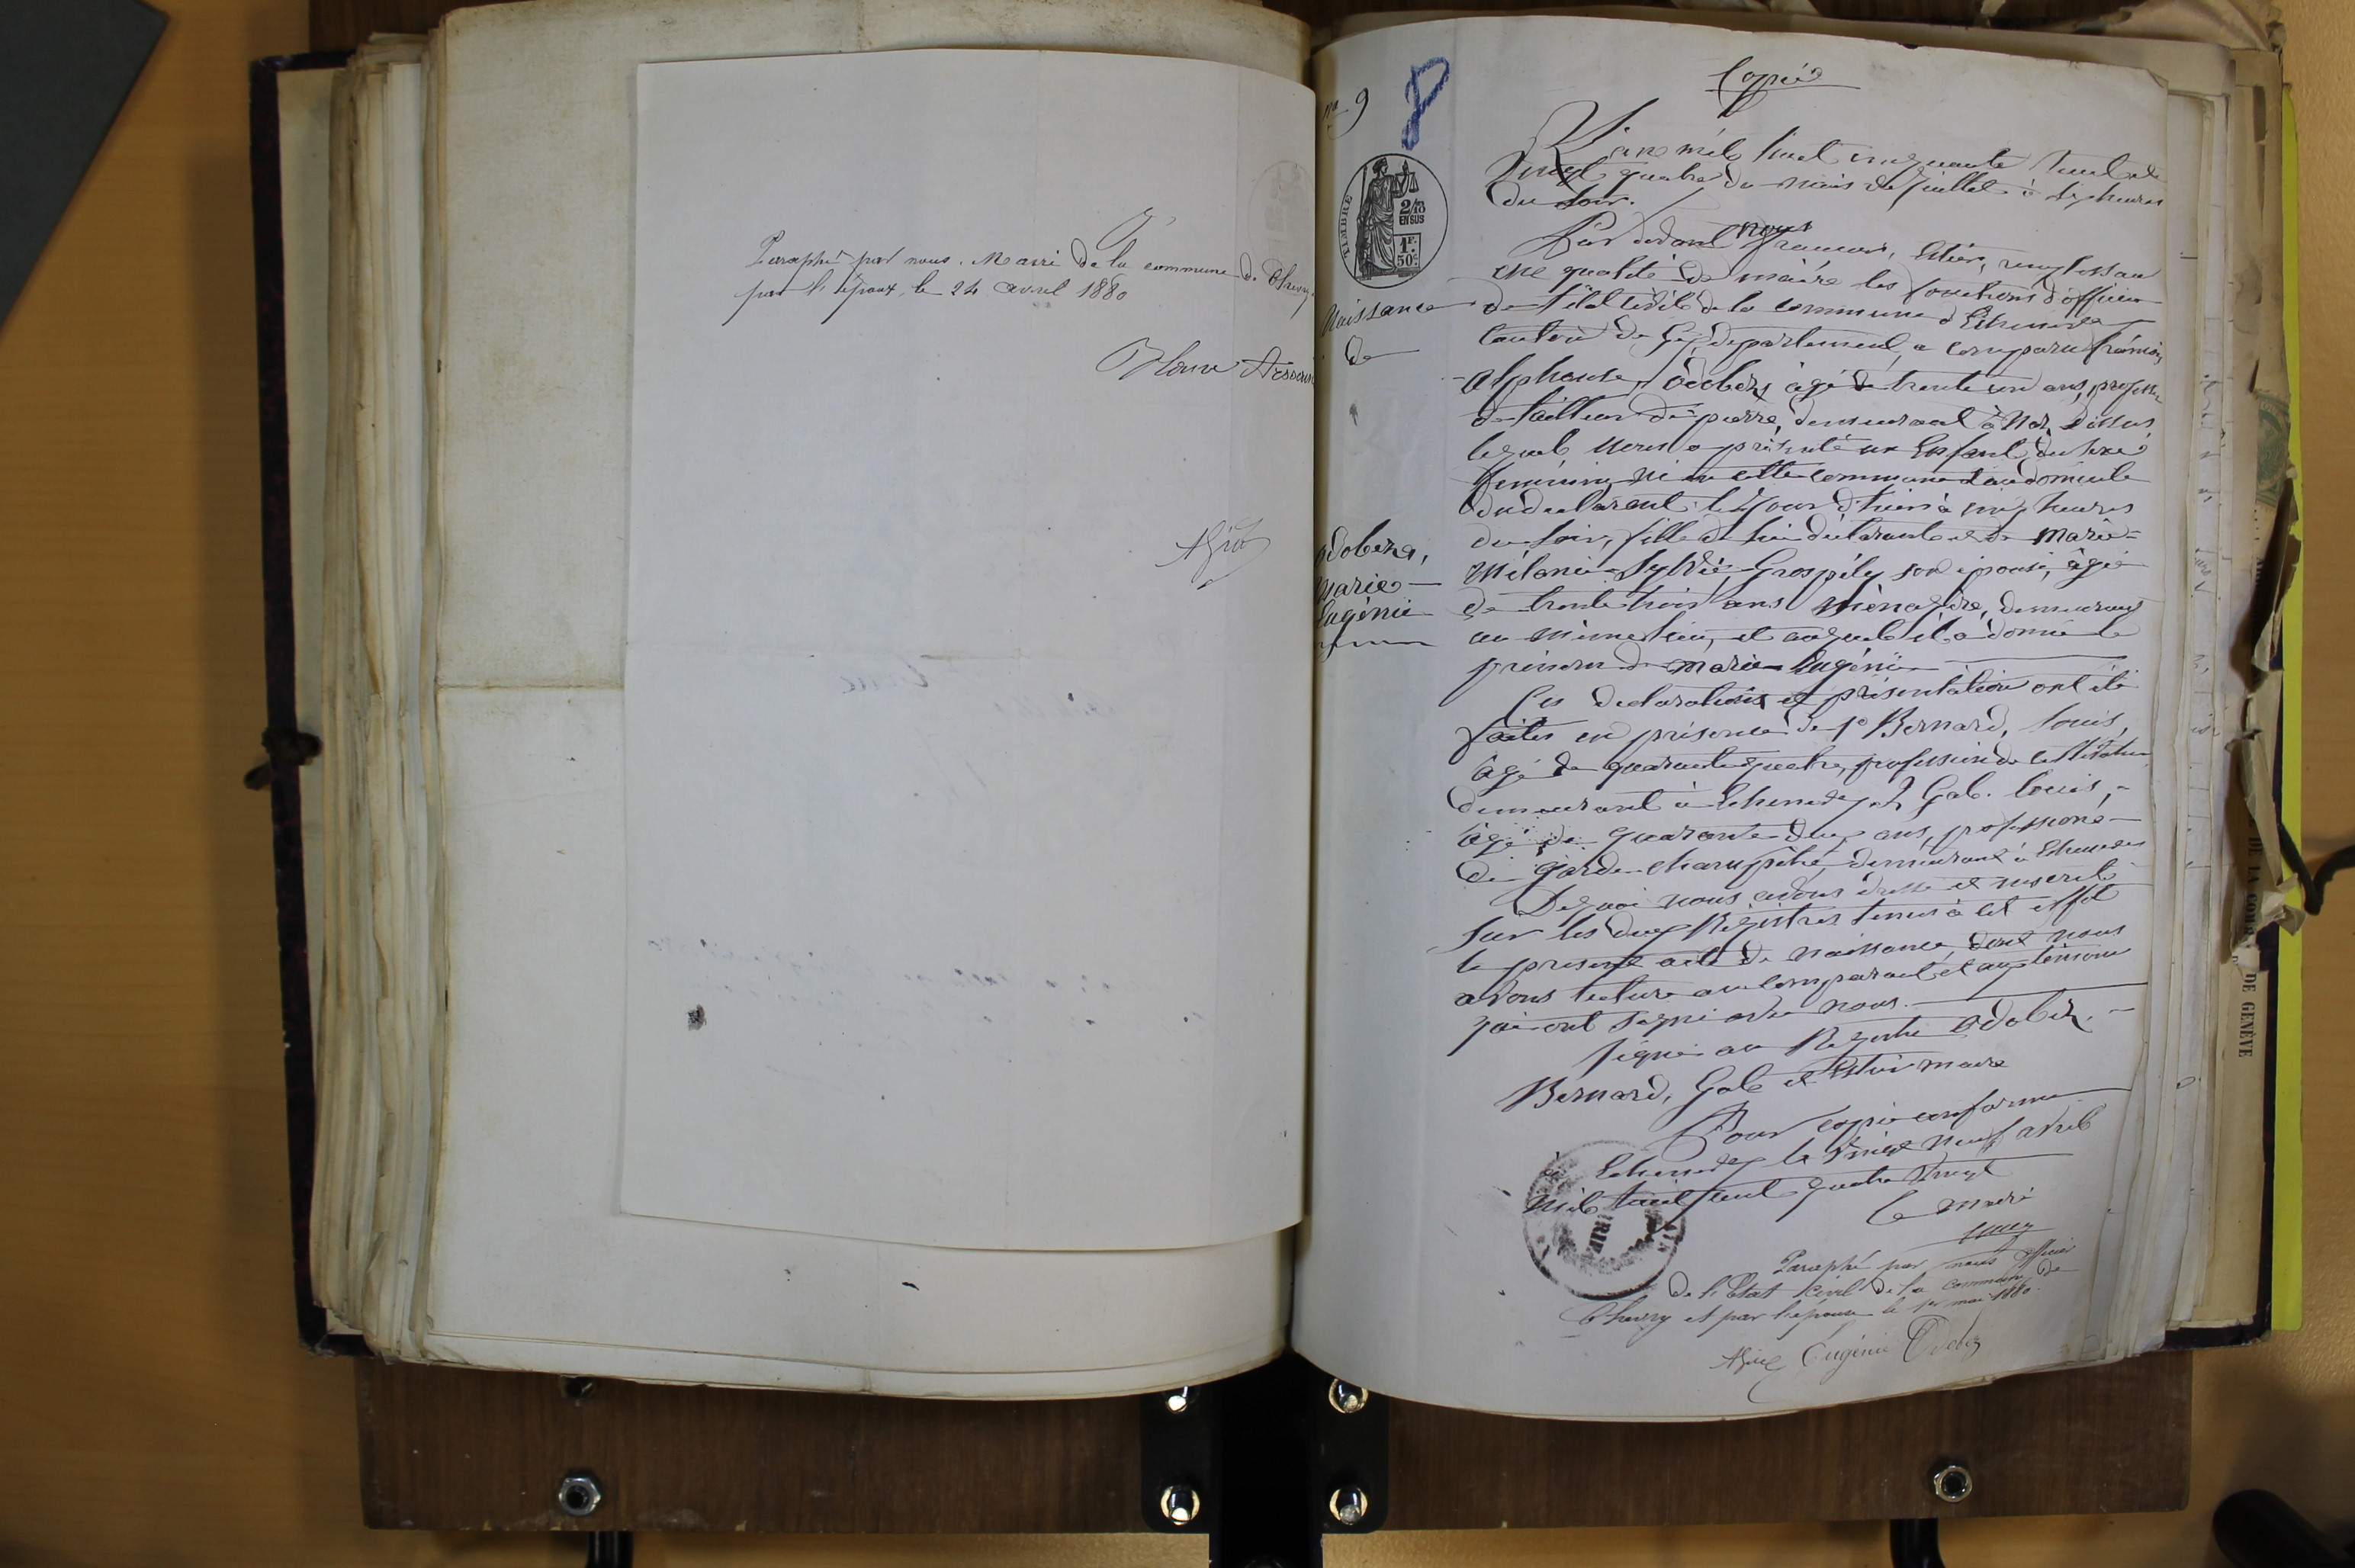 Paraphé par nous. Maire de la commune de Thoiry
par l'époux, le 24 avril 1880
AGirod
Copie
no 9
8
TIMBRE
2/10
EN SUS
1F.
50c.
Naissance
de
Odobez,
Marie
Eugénie
L'an mil huit cinquante huit et le
vingt quatre du mois de Juillet à six heures
du soir.
Par devant nous François, Estier, remplissant
en qualité de maire les fonctions d'officier
de l'état civil de la commune d'Echenevex
Canton de Gex, département, a comparu François
Alphonse, Odobez âgé de trente un ans, profession
de tailleur de pierre, demeurant à
lequel nous a présenté un Enfant du sexe
féminin, né en cette commune au domicile
du declarant le Jour d'hier à cinq heures
du soir, fille de lui déclarant et de Marie
Mélanie Sylvie, Grospély son épouse, âgée
de trente trois ans ménagère, demeurant
au même lieu, et auquel il a donné le
prénom de Marie Eugénie
Ces declarations et présentation ont été
faites en présence de 1o Bernard, Louis,
âgé de quarante quatre, profession de
demeurant à Echenevex, 2 Gal. Louis,
âgé de quarante deux ans, profession
de garde champêtre, demeurant à Echenevex
De quoi nous avons dressé et inscrit
sur les deux Registres tenus à cet effet
le présent acte de naissance, dont nous
avons lecture au comparant et aux témoins
qui ont signé avec nous.
Signé au Registre Odobez.
Bernard, Gal et Estier maire
Pour copie conforme
à Echenevex le vingt neuf avril
mil huit cent quatre vingt
Le maire
Paraphé par nous officier
de l'Etat civil de la commune de
Thoiry et par l'épouse le 1er mai 1880.
AGirod Eugénie Odobez
AIN
DE LA COUR
DE GENÈVE